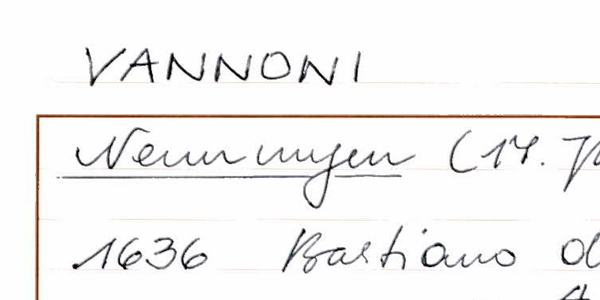 VANNONI
Nennungen (17. J
1636 Bastiano d